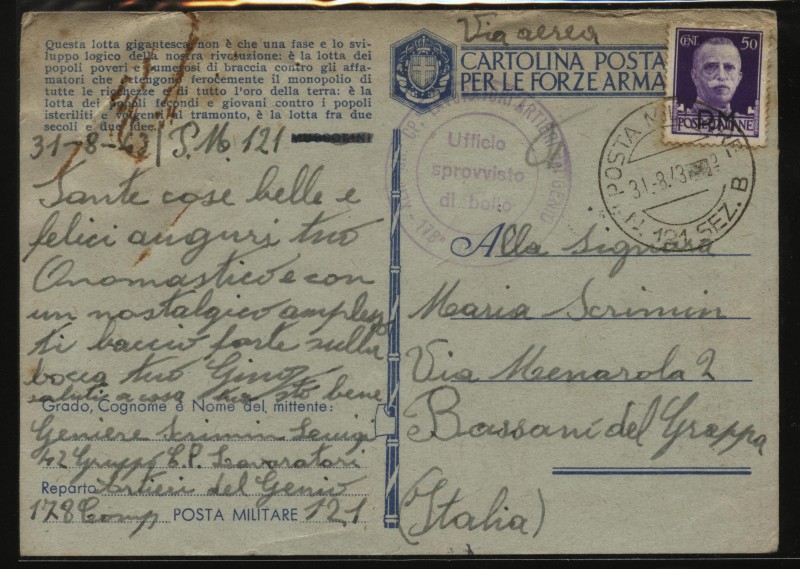 Questa lotta gigantesca non è che una fase e lo svi-
luppo logico della nostra rivoluzione: è la lotta dei
popoli poveri e numerosi di braccia contro gli affa-
matori che detengono ferocemente il monopolio di
tutte le ricchezze e di tutto l'oro della terra: è la
lotta dei popoli fecondi e giovani contro i popoli
isteriliti e volgenti al tramonto, è la lotta fra due
secoli e due idee.
31-8-43 P.M. 121
Sante cose belle e
felici auguri tuo
Onomastico e con
un nostalgico amplesso
ti baccio forte sulla
bocca tuo Gino
saluti a casa sto bene
Grado, Cognome e Nome del mittente:
Geniere Scrimin Luigi
42 Grupp. Lavoratori
Reparto Artieri del Genio
178 Comp POSTA MILITARE 121
Via aerea
CARTOLINA POSTA
PER LE FORZE ARMA
CENT. 50
POSTE ITALIANE
PM
POSTA MIL
31.8.43
N. 121 SEZ. B
LAVORATORI ARTIERI DEL GENIO
178ª
Ufficio
sprovvisto
di bollo
Alla Signora
Maria Scrimin
Via Menarola 2
Bassani del Grappa
(Italia)